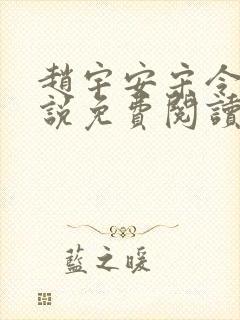 趙宇安宋令
說免費閱讀
藍之暖